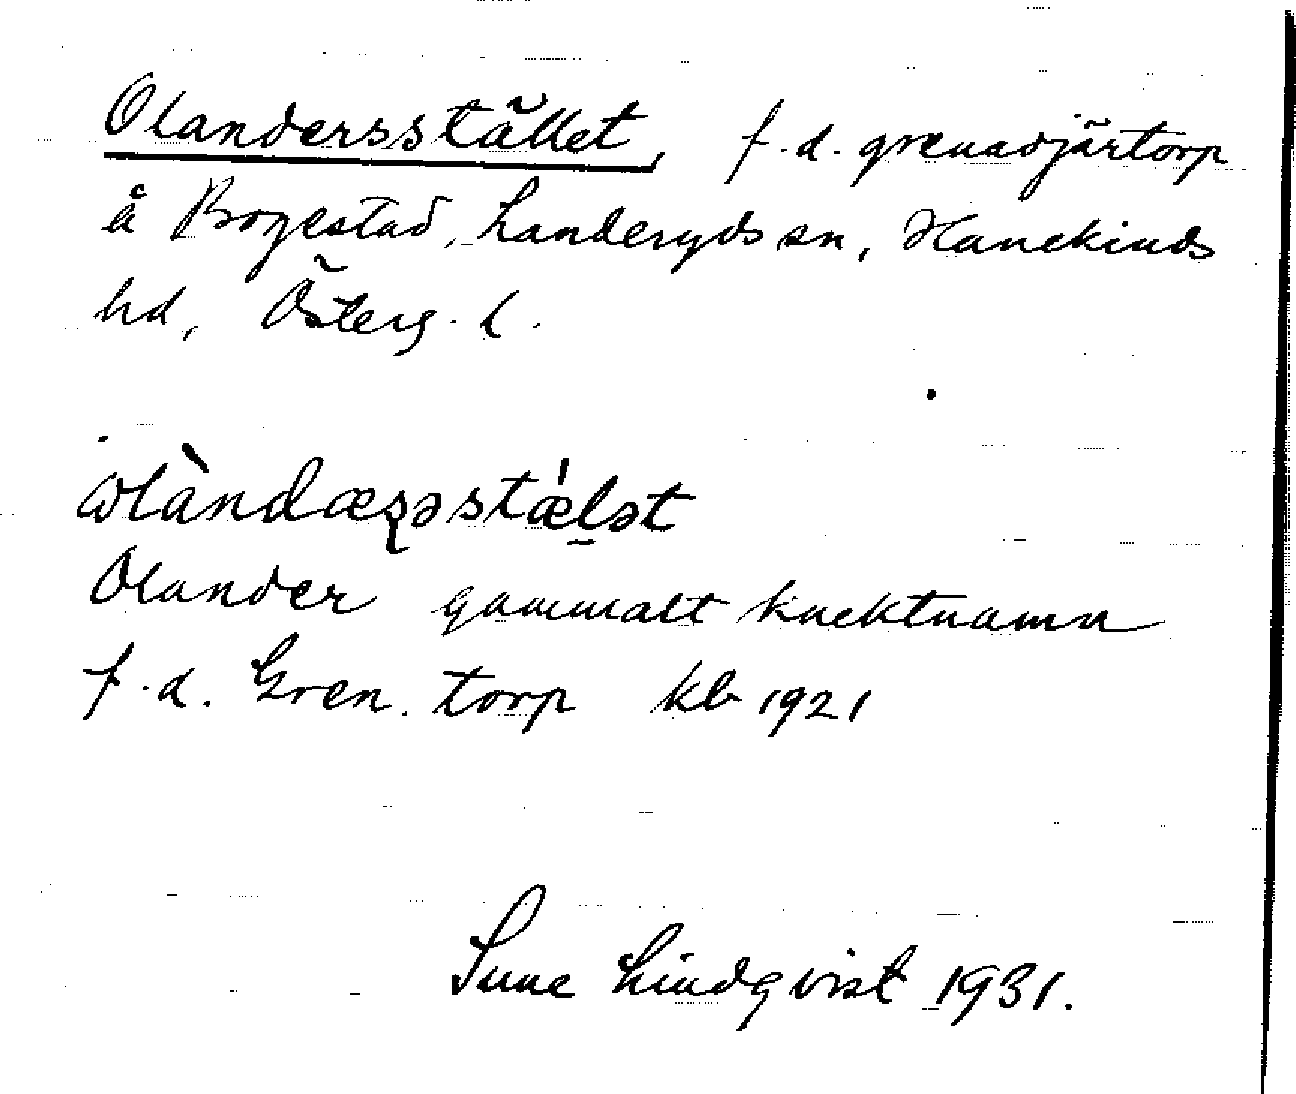 Olandersstället, f.d. grenadjärtorp
å Bogestad, Landeryds sn, Hanekinds
hd, Österg. l.
ɷlàndæʂəstǽlət
Olander gammalt knektnamn
f.d. Gren. torp kb 1921
Sune Lindqvist 1931.